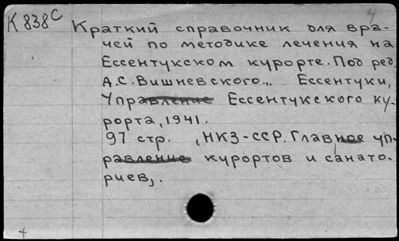 К 838с
4
Краткий справочник для вра-
чей по методике лечения на
Ессентукском курорте. Под ред.
А.С. Вишневского... Ессентуки,
Управление Ессентукского ку-
рорта, 1941.
97 стр. , НКЗ-ССР. Главное уп-
равление курортов и санато-
риев,.
4